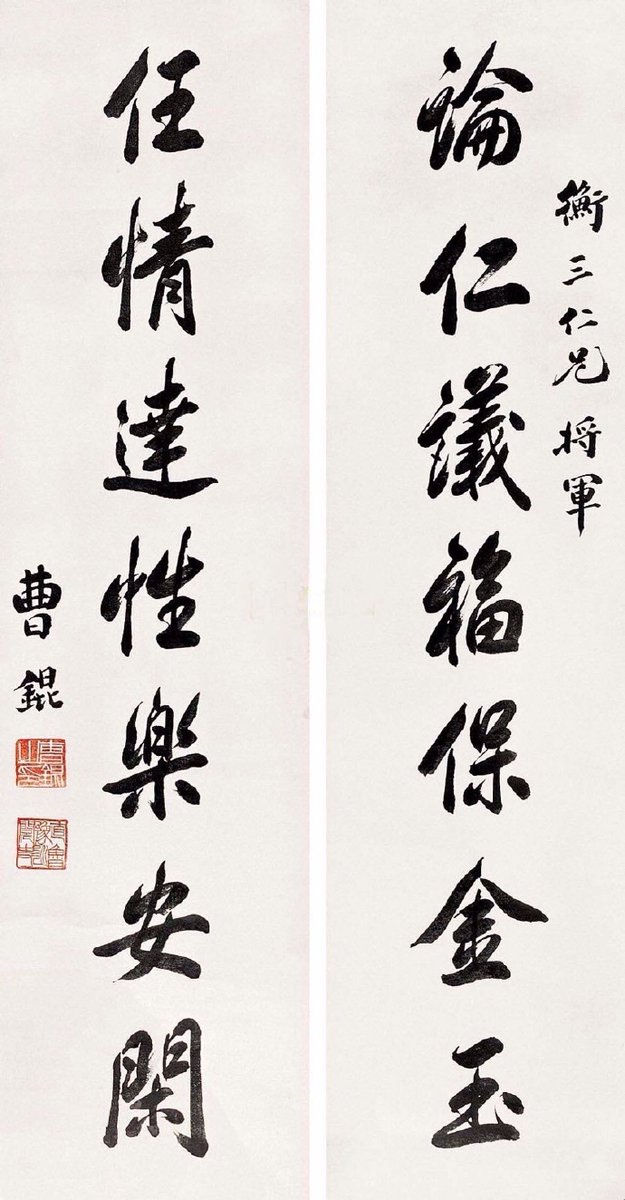 衡三仁兄將軍
論仁議福保金玉
任情達性樂安閑
曹錕